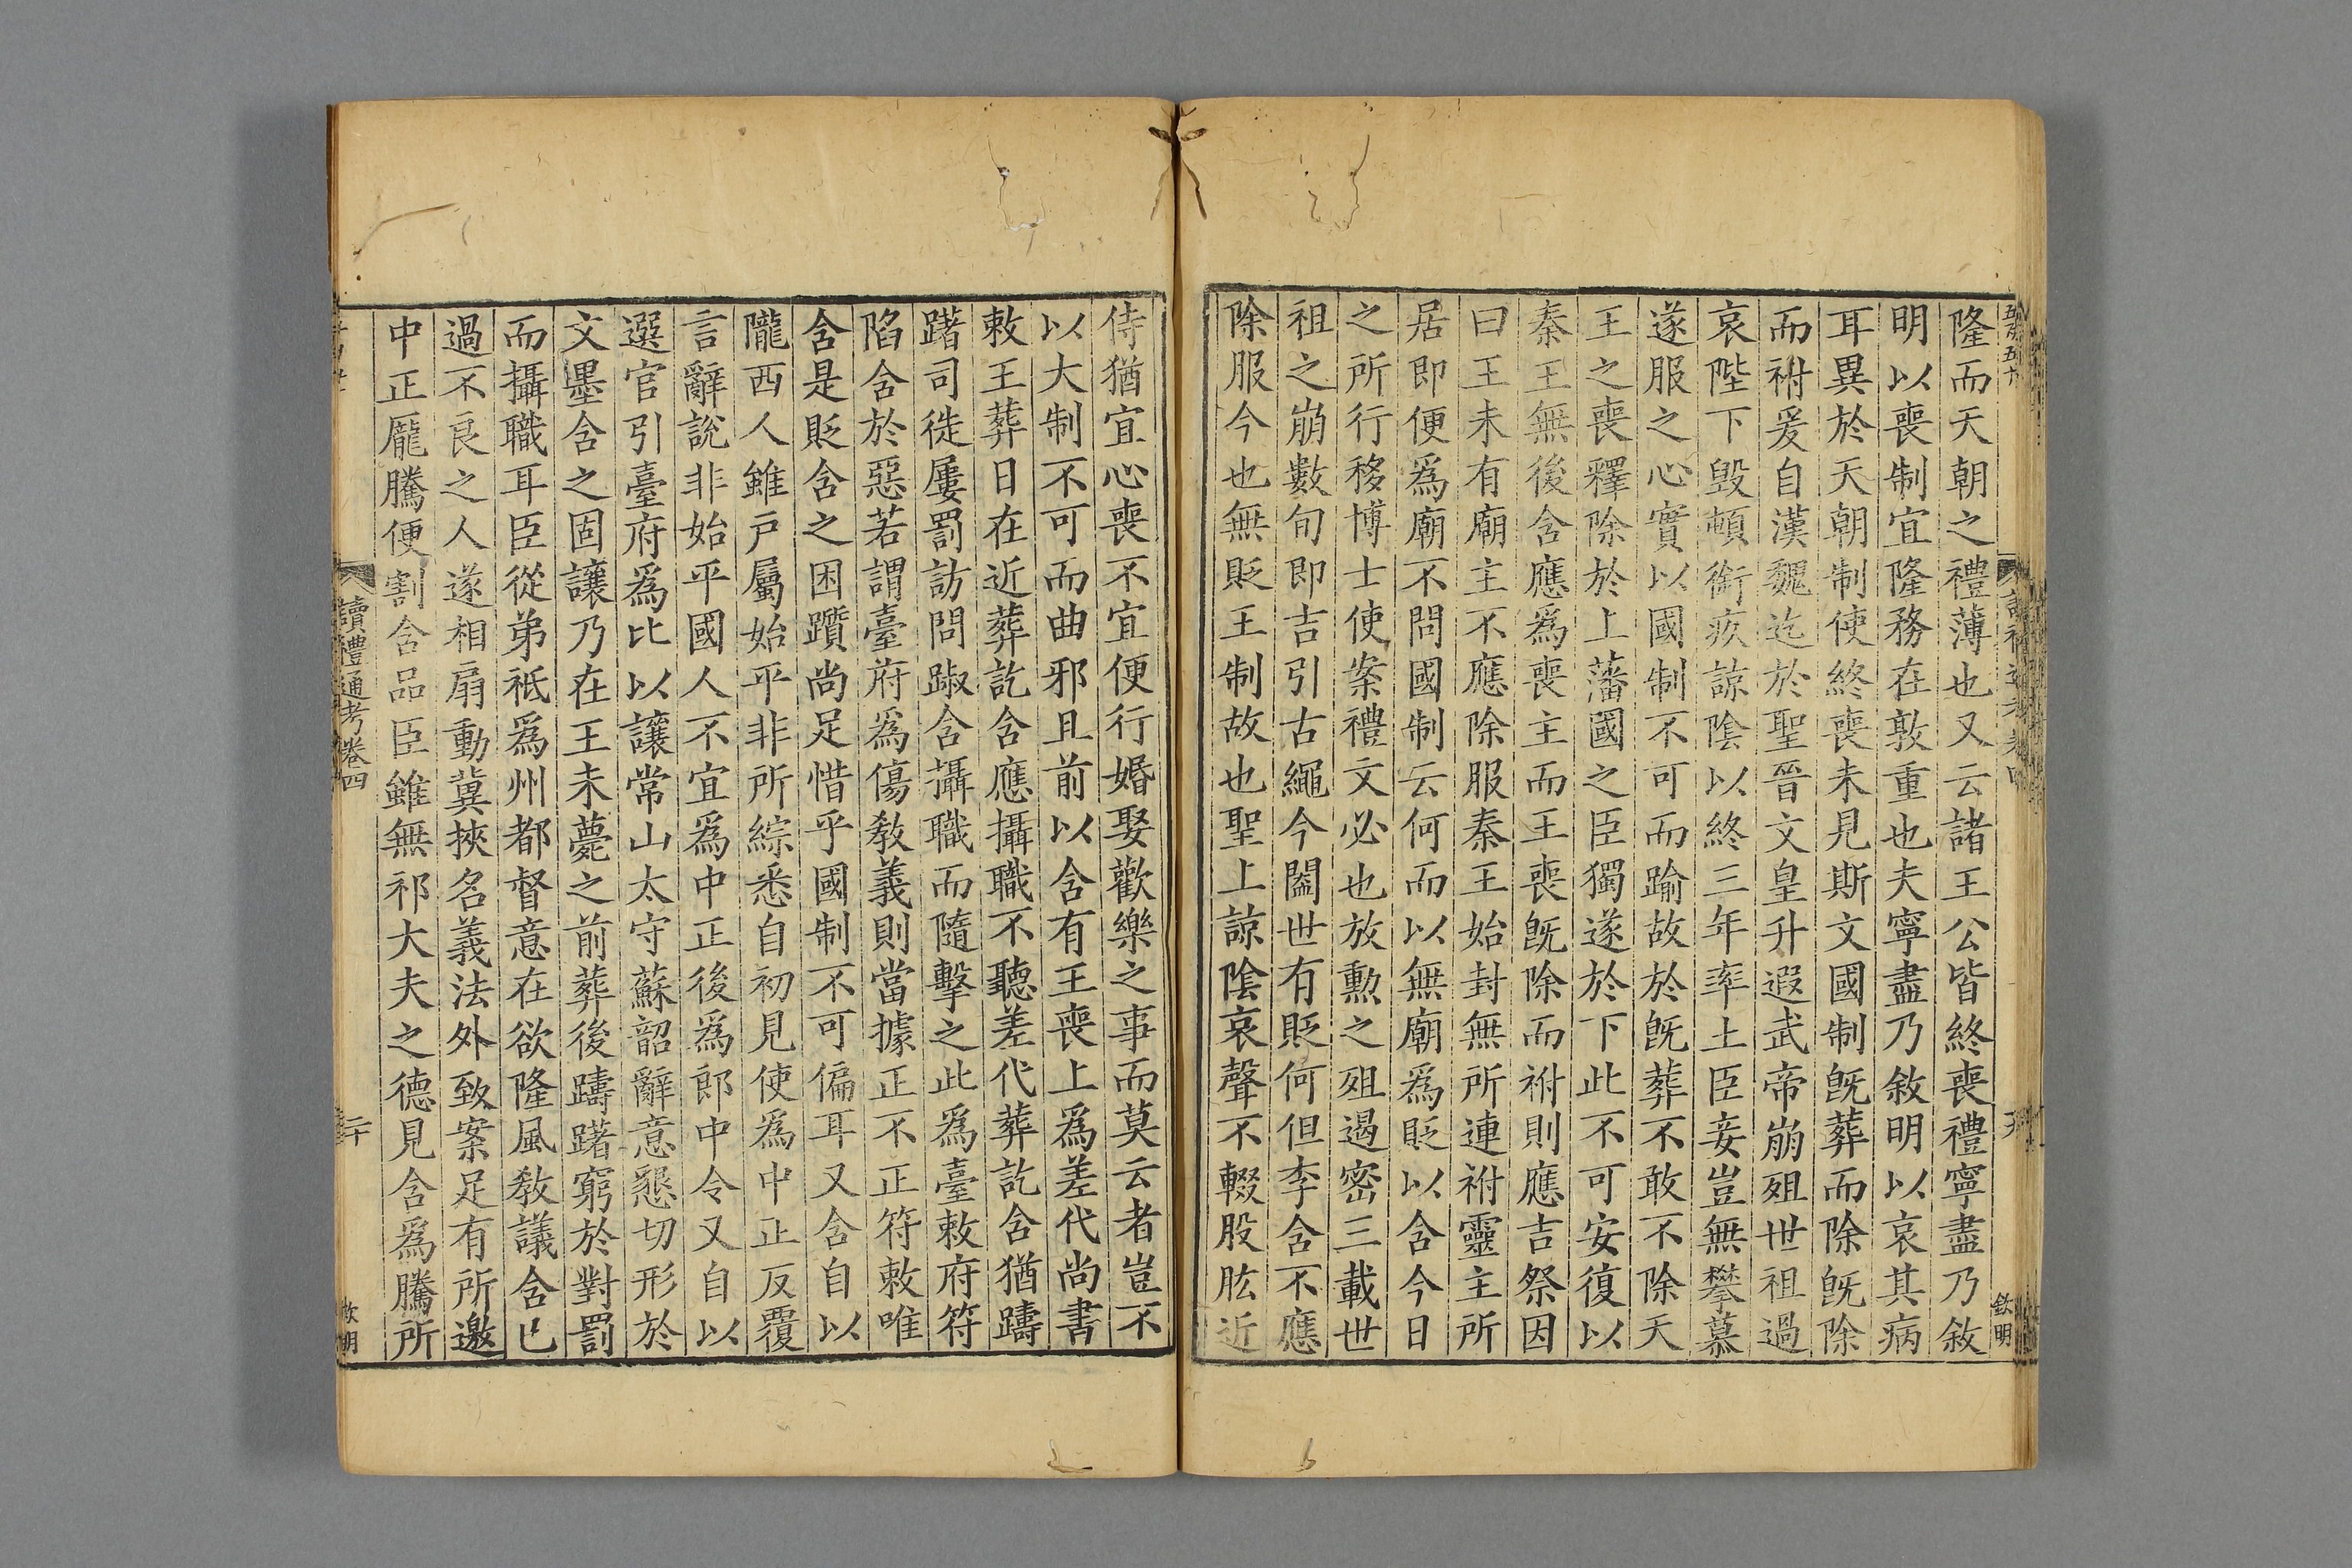 隆而天朝之禮薄也又云諸王公皆終喪禮寧盡乃敘
明以喪制宜隆務在敦重也夫寧盡乃敘明以哀其病
耳異於天朝制使終喪未見斯文國制旣葬而除旣除
而祔爰自漢魏迄於聖晉文皇升遐武帝崩殂世祖過
哀陛下毀頓銜疚諒陰以終三年率土臣妾豈無攀慕
遂服之心實以國制不可而踰故於旣葬不敢不除天
王之喪釋除於上藩國之臣獨遂於下此不可安復以
秦王無後含應爲喪主而王喪旣除而祔則應吉祭因
曰王未有廟主不應除服秦王始封無所連祔靈主所
居即便爲廟不問國制云何而以無廟爲貶以含今日
之所行移博士使案禮文必也放勳之殂遏密三載世
祖之崩數旬即吉引古繩今闔世有貶何但李含不應
除服今也無貶王制故也聖上諒陰哀聲不輟股肱近
侍猶宜心喪不宜便行婚娶歡樂之事而莫云者豈不
以大制不可而曲邪且前以含有王喪上爲差代尚書
敕王葬日在近葬訖含應攝職不聽差代葬訖含猶躊
躇司徒屢罰訪問踧含攝職而隨擊之此爲臺敕府符
陷含於惡若謂臺府爲傷敎義則當據正不正符敕唯
含是貶含之困躓尚足惜乎國制不可偏耳又含自以
隴西人雖戶屬始平非所綜悉自初見使爲中正反覆
言辭說非始平國人不宜爲中正後爲郎中令又自以
選官引臺府爲比以讓常山太守蘇韶辭意懇切形於
文墨含之固讓乃在王未薨之前葬後躊躇窮於對罰
而攝職耳臣從弟祗爲州都督意在欲隆風敎議含已
過不良之人遂相扇動冀挾名義法外致案足有所邀
中正龐騰便割含品臣雖無祁大夫之德見含爲騰所
讀禮通考卷四
二十
欽明